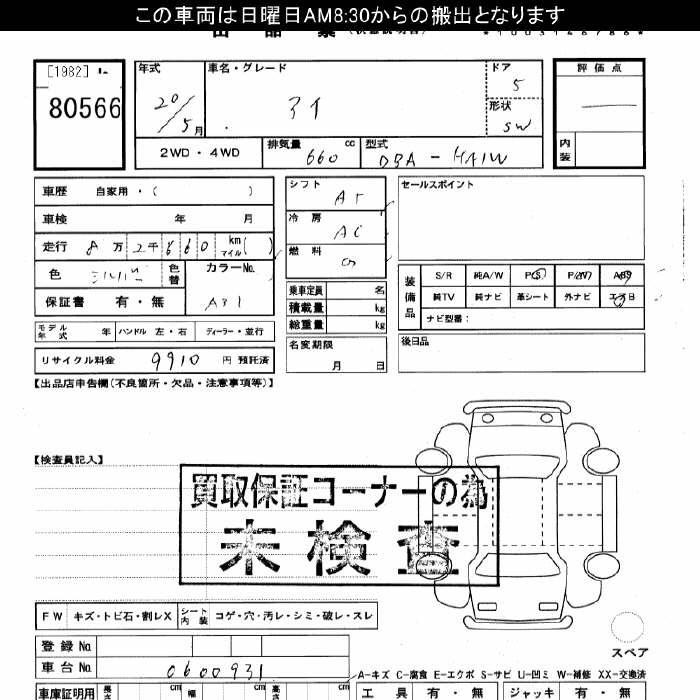 この車両は日曜日AM8:30からの搬出となります
[1982]
80566
年式
20/5月
車名・グレード
アイ
ドア
5
形状
SW
評価点
内装
2WD・4WD
排気量 660 cc
型式 DBA-HA1W
車歴 自家用・( )
車検 年 月
走行 8万2千660 km マイル( )
色 シルバー 色替
カラーNo. A31
保証書 有・無
モデル年式 年 ハンドル 左・右 ディーラー・並行
リサイクル料金 9910 円 預託済
シフト AT
冷房 AC
燃料 G
乗車定員 名
積載量 kg
総重量 kg
名変期限 月 日
セールスポイント
装備品
S/R 純A/W P/S P/W ABS
純TV 純ナビ 革シート 外ナビ エアB
ナビ型番:
後日品
【出品店申告欄(不良箇所・欠品・注意事項等)】
【検査員記入】
買取保証コーナーの為
未検査
FW キズ・トビ石・割レX シート内装 コゲ・穴・汚レ・シミ・破レ・スレ
登録No.
車台No. 0600931
スペア
A-キズ C-腐食 E-エクボ S-サビ U-凹ミ W-補修 XX-交換済
車庫証明用 長さ cm 幅 cm 高さ cm
工具 有・無 ジャッキ 有・無